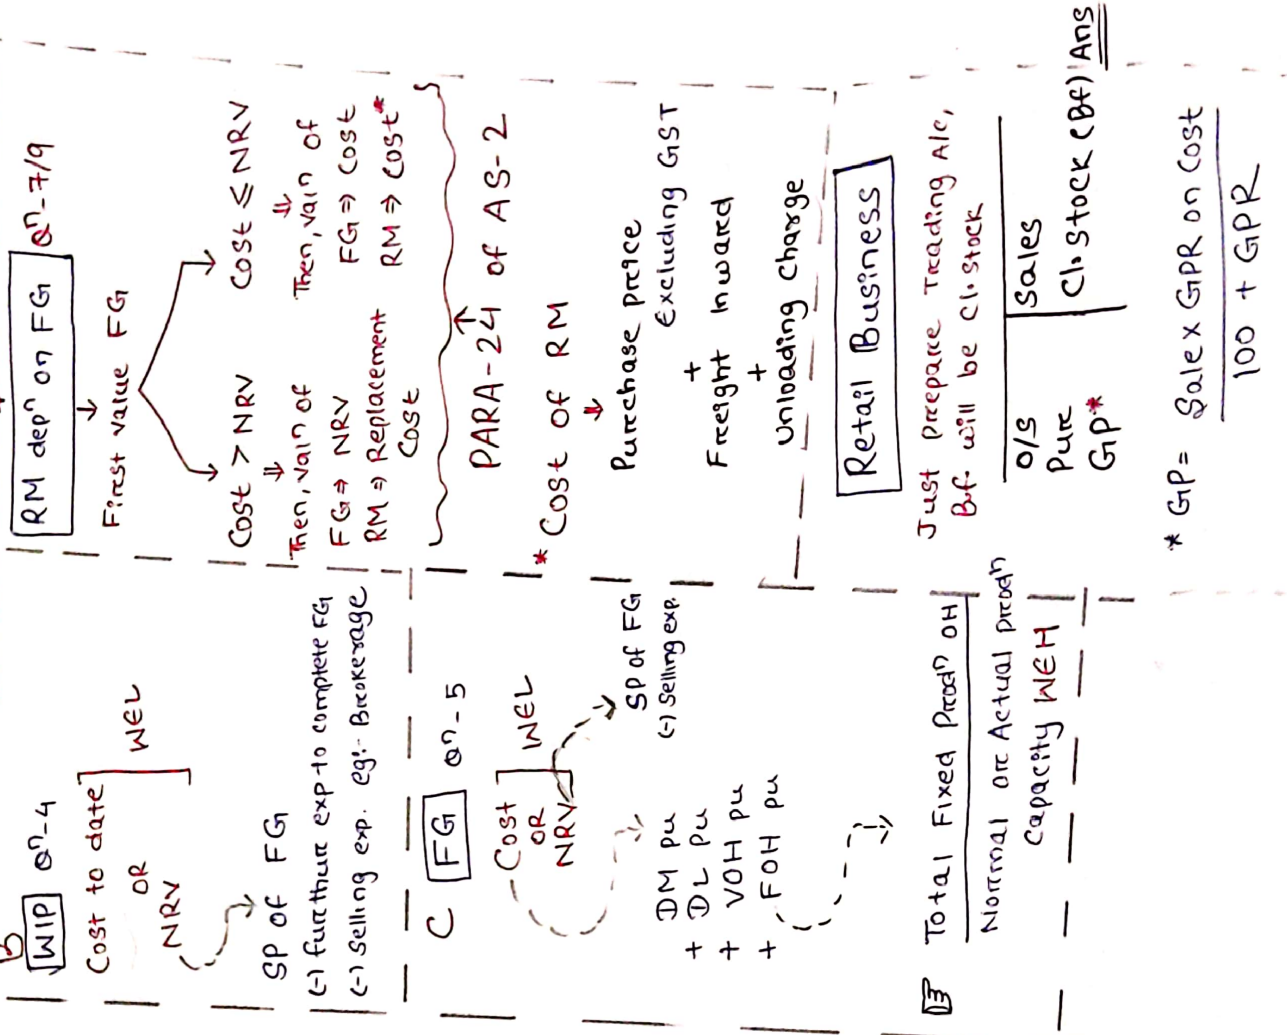 B
WIP Qn-4
Cost to date
OR
NRV
WEL
SP of FG
(-) furthure exp to complete FG
(-) selling exp. eg:- Brokerage
C FG Qn-5
Cost
OR
NRV
WEL
SP of FG
(-) selling exp.
DM pu
+ DL pu
+ VOH pu
+ FOH pu
Total Fixed Prodn OH
Normal or Actual prodn
capacity WEH
RM depn on FG Qn-7/9
First value FG
Cost > NRV
Then, valn of
FG ⇒ NRV
RM ⇒ Replacement
Cost
Cost ≤ NRV
Then, valn of
FG ⇒ Cost
RM ⇒ Cost*
PARA-24 of AS-2
* Cost of RM
Purchase price
excluding GST
+
Freight Inward
+
Unloading Charge
Retail Business
Just prepare Trading A/c,
Bf. will be Cl. stock
O/S
Pure
GP*
Sales
Cl. Stock (Bf) Ans
* GP = Sale x GPR on Cost
100 + GPR